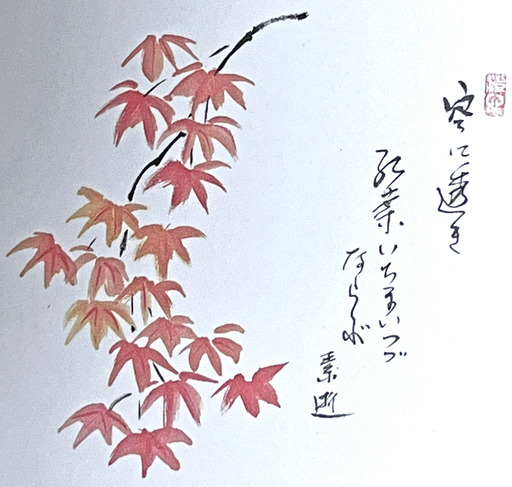 空に透き
紅葉いちまいづつ
ならぶ
素逝